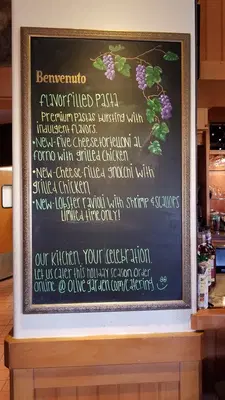 Benvenuto
Flavorfilled Pasta
Premium Pastas bursting with
indulgent flavors.
•New-Five Cheese tortelloni al
forno with grilled chicken
•New-Cheese filled gnocchi with
grilled chicken
•New-Lobster ravioli with shrimp & scallops
Limited time only!
Our kitchen, your celebration.
Let us cater this holiday season. Order
online @ olivegarden.com/catering